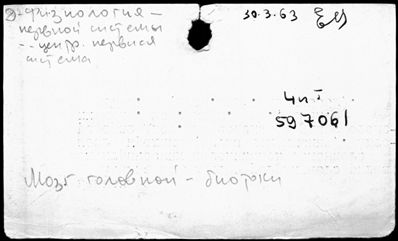 Физиология —
нервной системы
-- центр. нервная
система
30.3.63
4и
597061
Мозг головной - биотоки